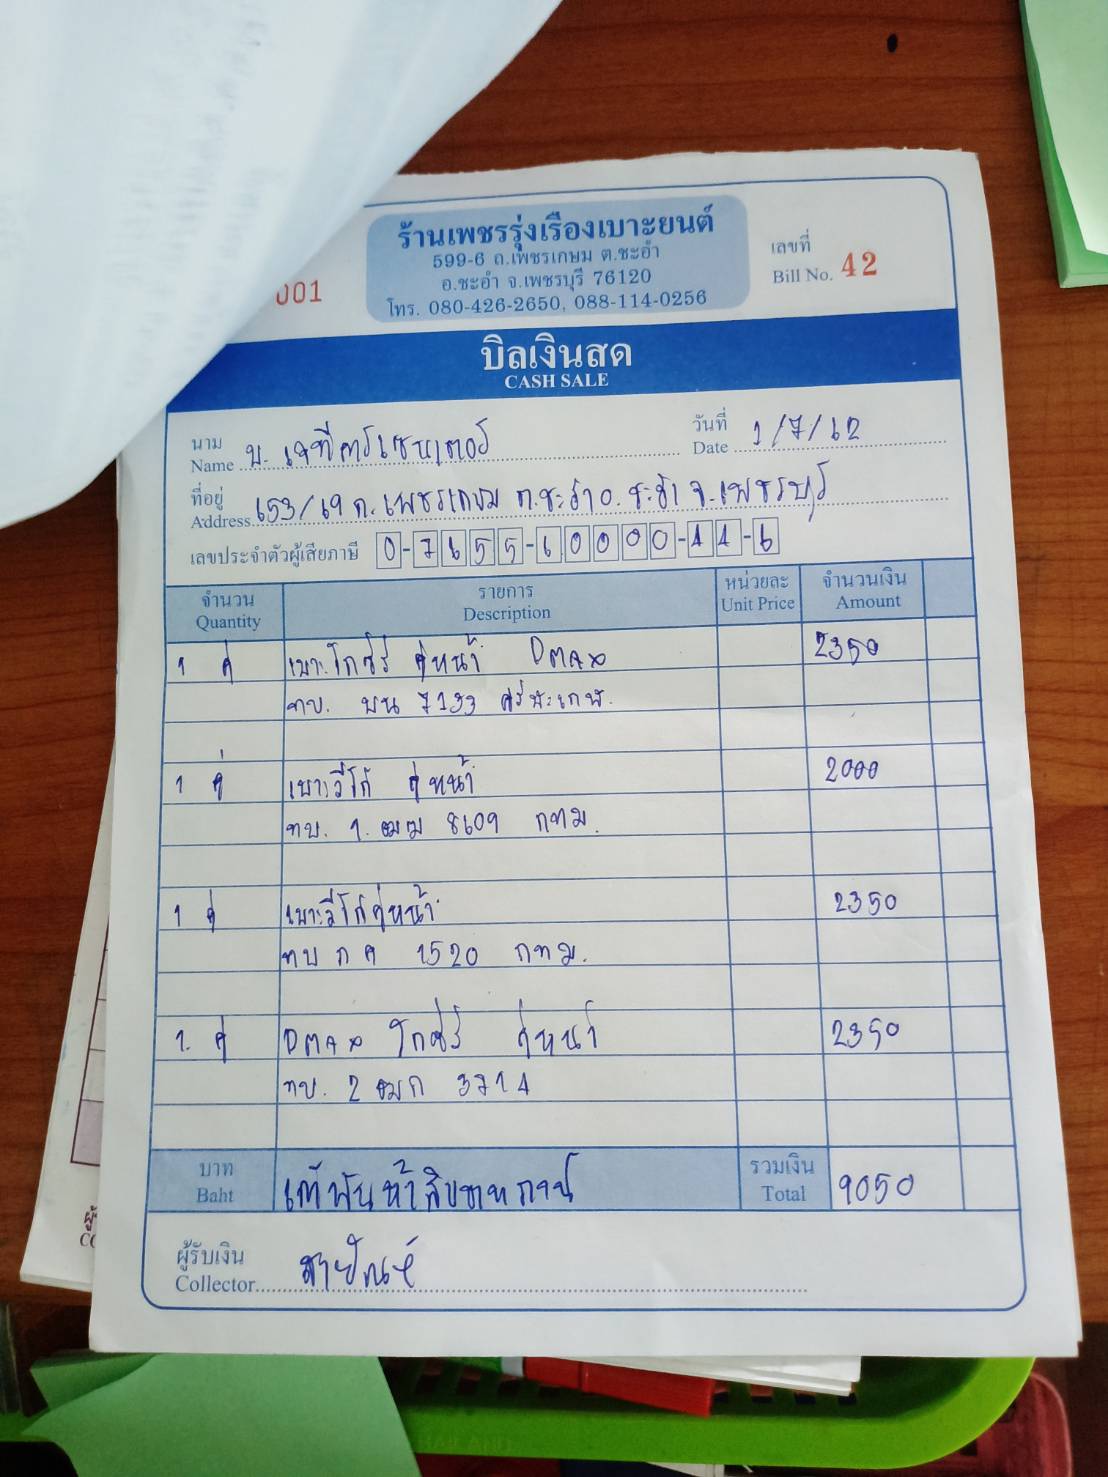 ร้านเพชรรุ่งเรืองเบาะยนต์
599-6 ถ.เพชรเกษม ต.ชะอำ
อ.ชะอำ จ.เพชรบุรี 76120
โทร. 080-426-2650, 088-114-0256
001
เลขที่
Bill No. 42
บิลเงินสด
CASH SALE
นาม
Name บ. เจที คาร์เซนเตอร์
วันที่
Date 1/7/62
ที่อยู่
Address 653/69 ถ.เพชรเกษม ต.ชะอำ อ.ชะอำ จ.เพชรบุรี
เลขประจำตัวผู้เสียภาษี 0-7655-60000-44-6
จำนวน รายการ หน่วยละ จำนวนเงิน
Quantity Description Unit Price Amount
1 คู่ เบาะ คู่หน้า DMAX 2350
ทบ. บน 7133 ศรีสะเกษ.
1 คู่ เบาะวีโก้ คู่หน้า 2000
ทบ. 1. ฒฒ 8609 กทม.
1 คู่ เบาะวีโก้คู่หน้า 2350
ทบ 1520 กทม.
1. คู่ DMAX คู่หน้า 2350
ทบ. 2 ฒก 3714
บาท เก้าพันห้าสิบบาทถ้วน รวมเงิน
Baht Total 9050
ผู้รับเงิน
Collector สายัณห์